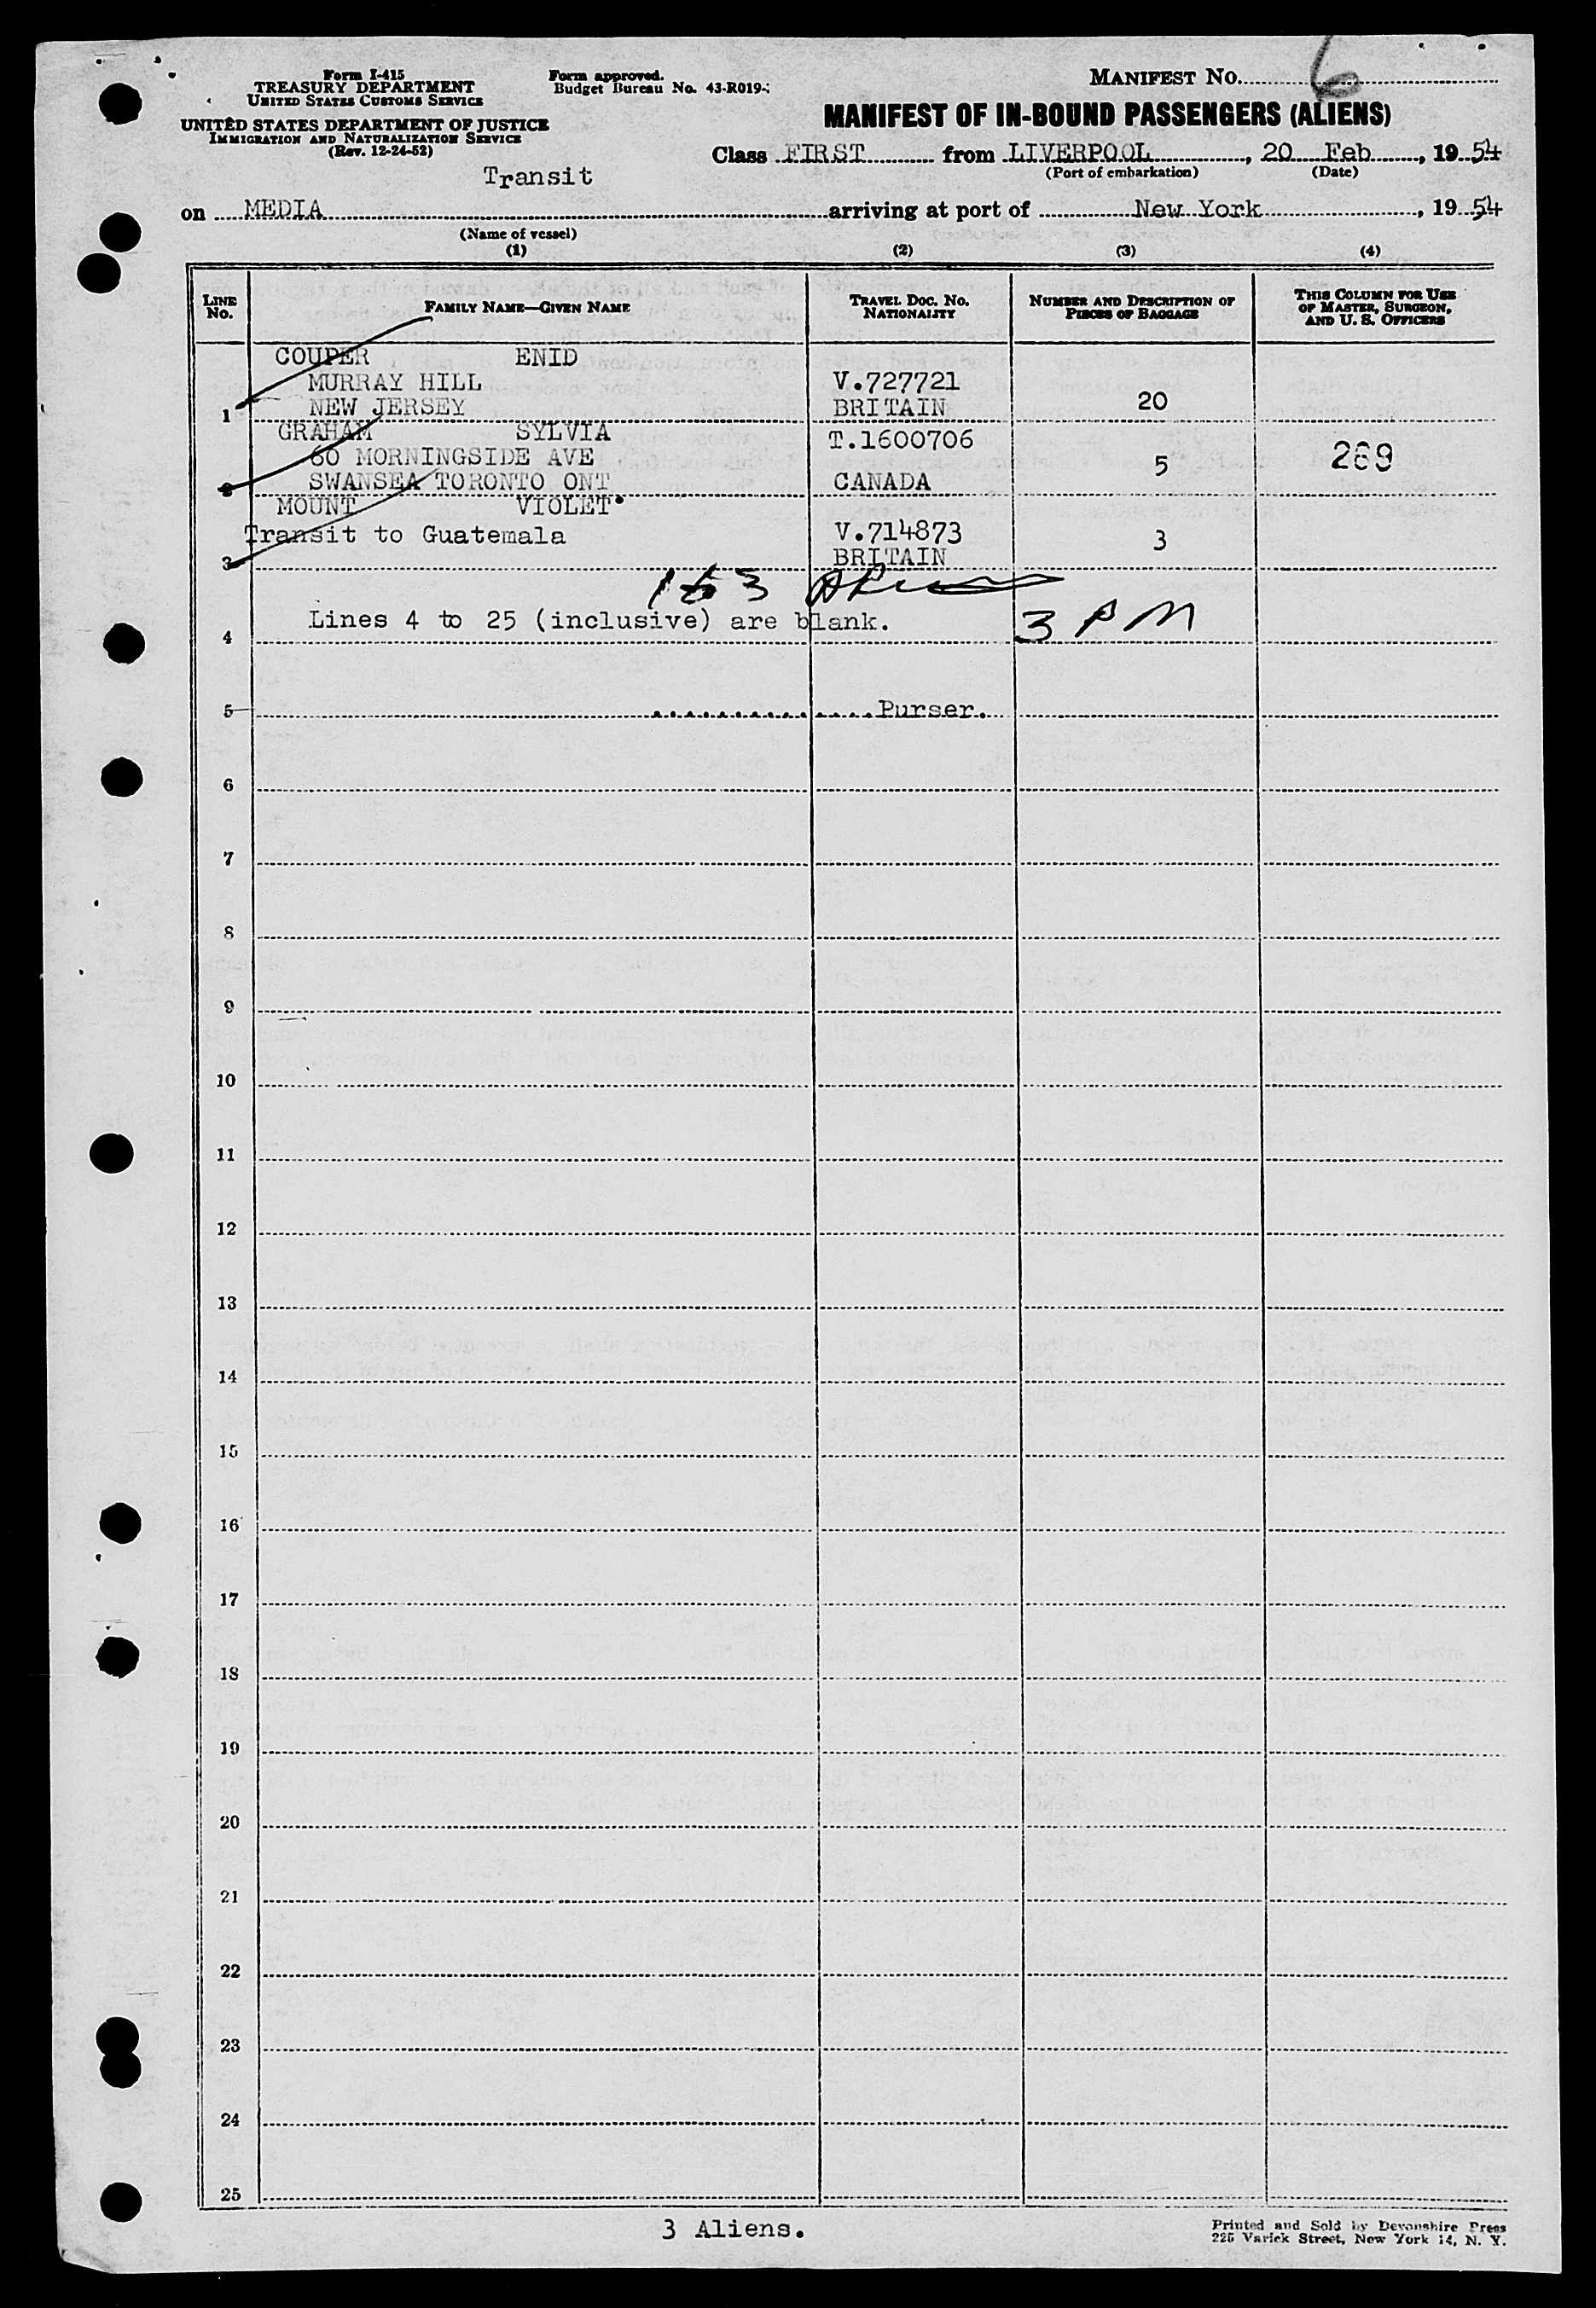 Form I-415
TREASURY DEPARTMENT
UNITED STATES CUSTOMS SERVICE
UNITED STATES DEPARTMENT OF JUSTICE
IMMIGRATION AND NATURALIZATION SERVICE
(Rev. 12-24-52)
Form approved.
Budget Bureau No. 43-R019-
MANIFEST NO. 6
MANIFEST OF IN-BOUND PASSENGERS (ALIENS)
Class FIRST from LIVERPOOL, 20 Feb, 1954
(Port of embarkation) (Date)
Transit
on MEDIA arriving at port of New York, 1954
(Name of vessel)
(1) (2) (3) (4)
LINE NO. FAMILY NAME—GIVEN NAME TRAVEL DOC. NO. NATIONALITY NUMBER AND DESCRIPTION OF PIECES OF BAGGAGE THIS COLUMN FOR USE OF MASTER, SURGEON, AND U. S. OFFICERS
COUPER ENID
MURRAY HILL V.727721
1 NEW JERSEY BRITAIN 20
GRAHAM SYLVIA T.1600706
60 MORNINGSIDE AVE 5 269
2 SWANSEA TORONTO ONT CANADA
MOUNT VIOLET
Transit to Guatemala V.714873 3
3 BRITAIN
1 to 3
Lines 4 to 25 (inclusive) are blank. 3 PM
4
5 Purser.
6
7
8
9
10
11
12
13
14
15
16
17
18
19
20
21
22
23
24
25
3 Aliens.
Printed and Sold by Devonshire Press
225 Varick Street, New York 14, N. Y.